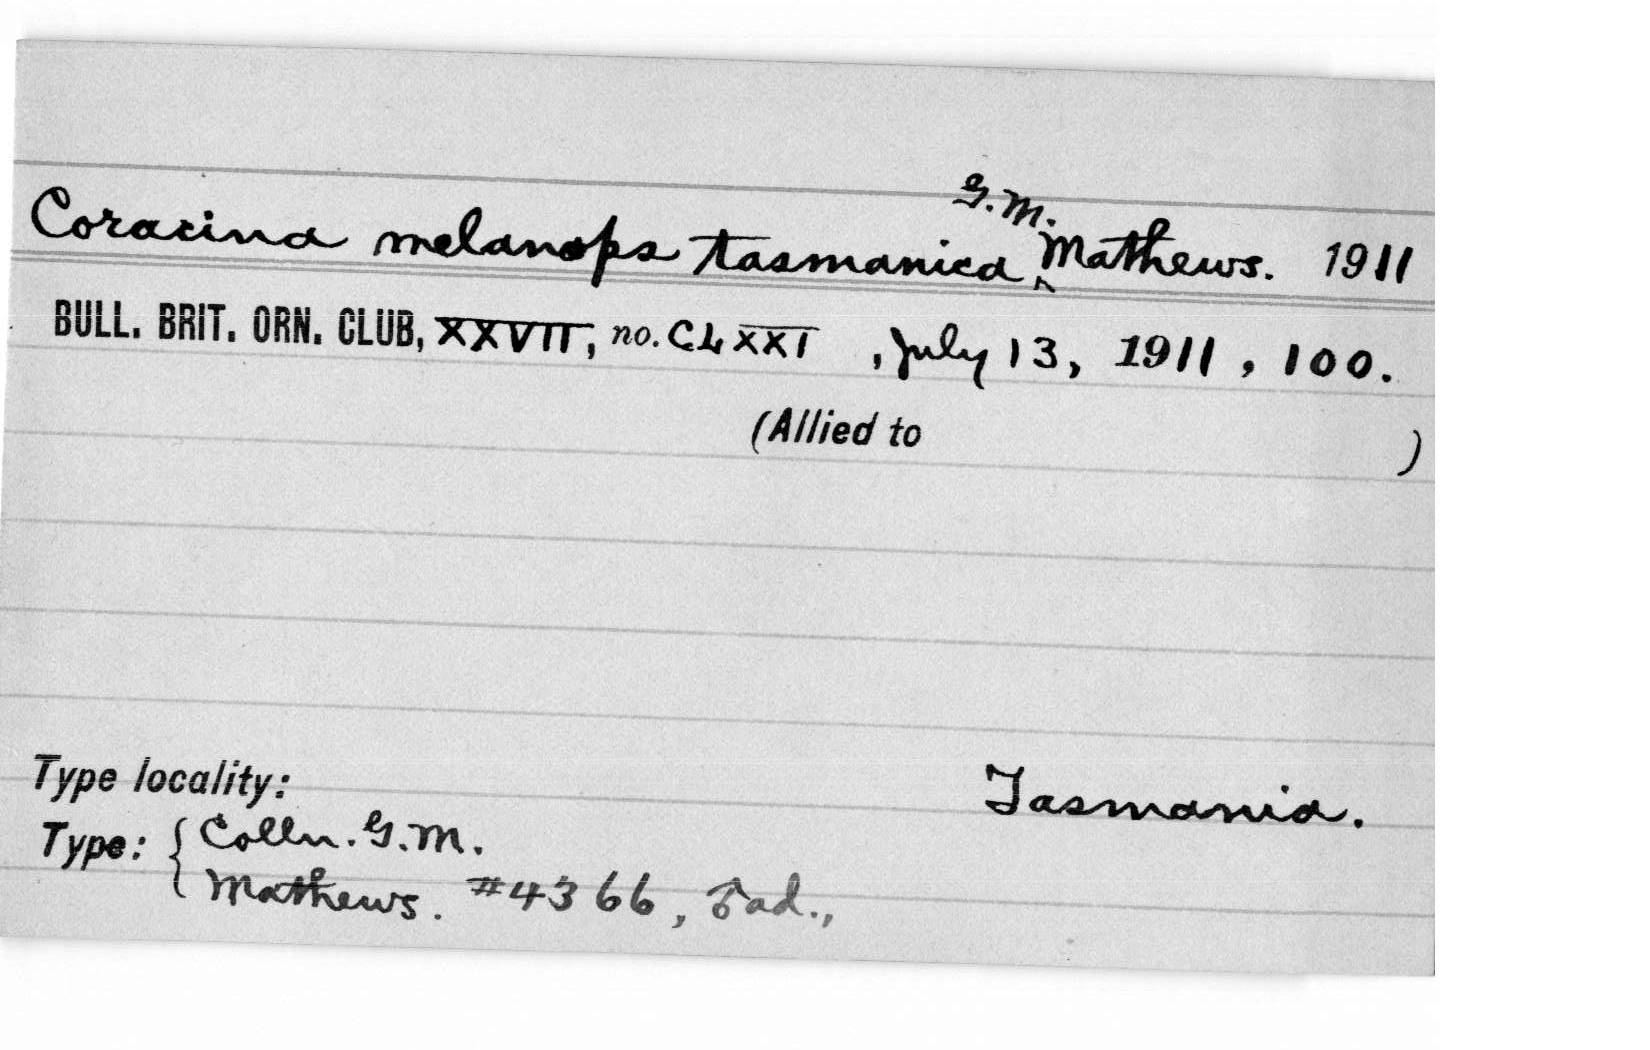 Coracina melanops tasmanica G.M. Mathews. 1911
BULL. BRIT. ORN. CLUB, XXVII, no. CLXXI, July 13, 1911, 100.
(Allied to )
Type locality: Tasmania.
Type: { Colln. G.M.
Mathews. #4366, ♂ ad.,